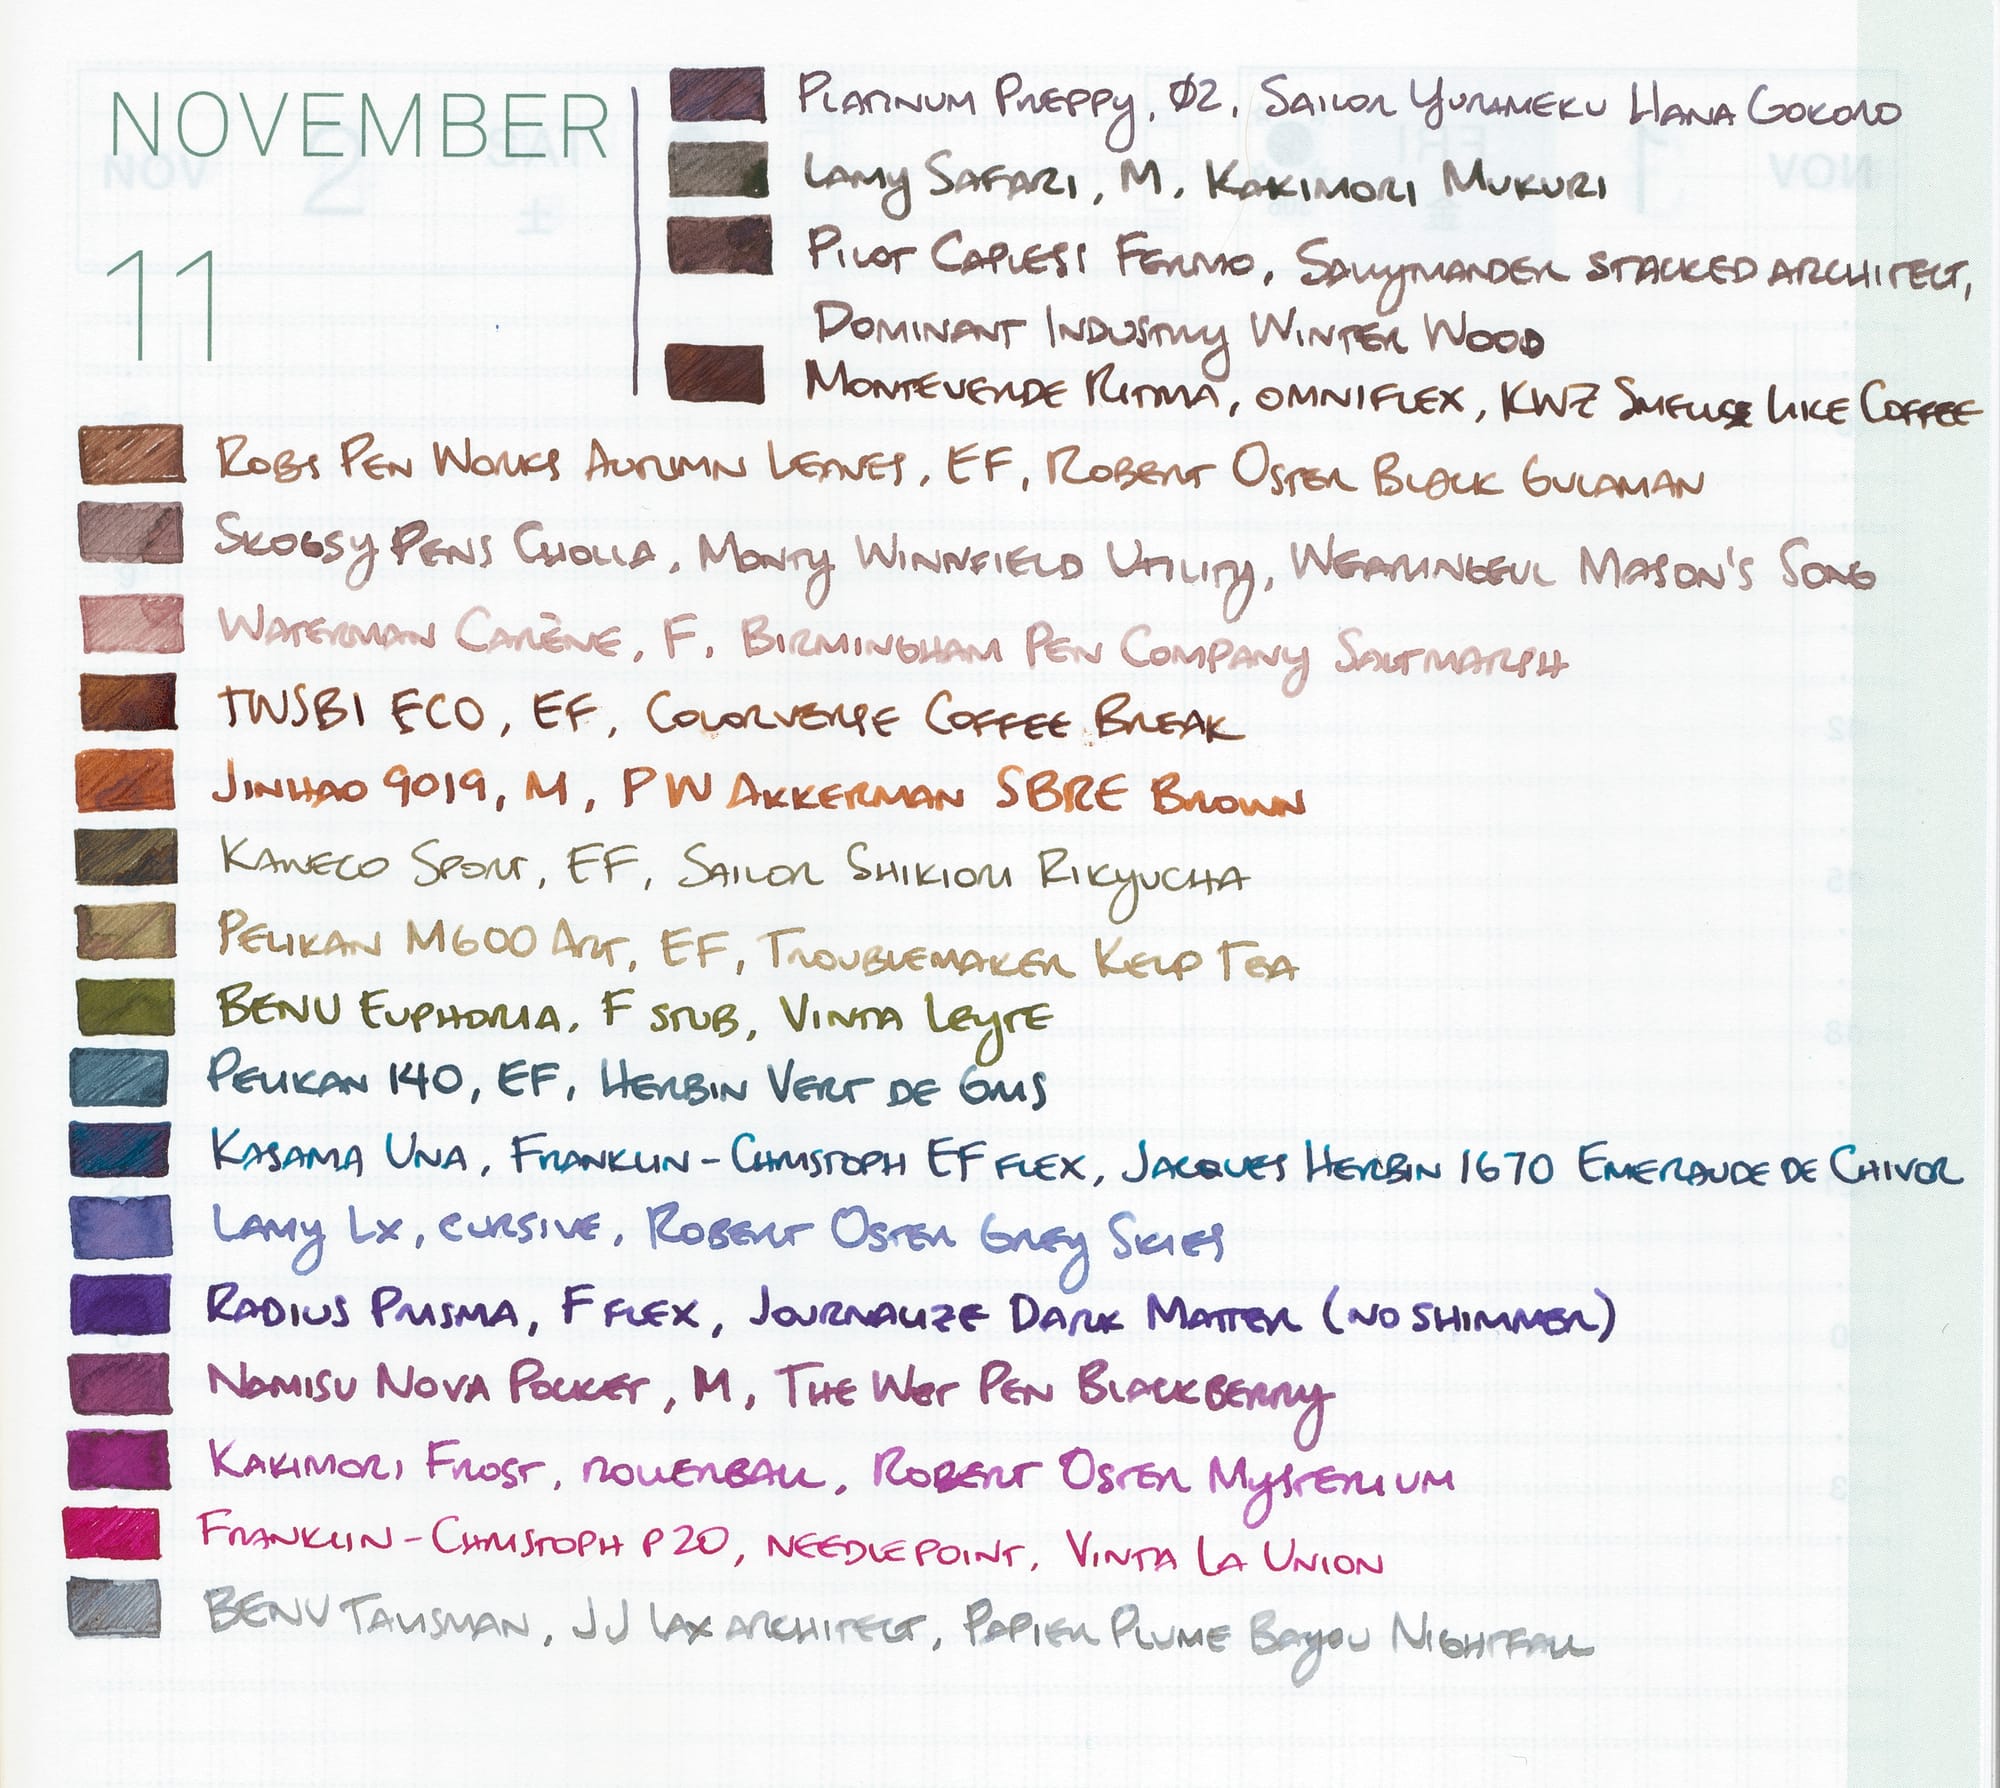 NOVEMBER
11
PLATINUM PREPPY, Ø2, SAILOR YURAMEKU HANA GOKORO
LAMY SAFARI, M, KAKIMORI MUKURI
PILOT CAPLESS FERMO, SALLYMANDER STACKED ARCHITECT,
DOMINANT INDUSTRY WINTER WOOD
MONTEVERDE RITMA, OMNIFLEX, KWZ SMELLS LIKE COFFEE
ROBS PEN WORKS AUTUMN LEAVES, EF, ROBERT OSTER BLACK GULAMAN
SKOGSY PENS CHOLLA, MONTY WINNFIELD UTILITY, WEARINGEUL MASON'S SONG
WATERMAN CARÈNE, F, BIRMINGHAM PEN COMPANY SALTMARSH
TWSBI ECO, EF, COLORVERSE COFFEE BREAK
JINHAO 9019, M, P W AKKERMAN SBRE BROWN
KAWECO SPORT, EF, SAILOR SHIKIORI RIKYUCHA
PELIKAN M600 ART, EF, TROUBLEMAKER KELP TEA
BENU EUPHORIA, F STUB, VINTA LEYTE
PELIKAN 140, EF, HERBIN VERT DE GRIS
KASAMA UNA, FRANKLIN-CHRISTOPH EF FLEX, JACQUES HERBIN 1670 EMERAUDE DE CHIVOR
LAMY LX, CURSIVE, ROBERT OSTER GREY SKIES
RADIUS PRISMA, F FLEX, JOURNALIZE DARK MATTER (NO SHIMMER)
NAMISU NOVA POCKET, M, THE WET PEN BLACKBERRY
KAKIMORI FROST, ROLLERBALL, ROBERT OSTER MYSTERIUM
FRANKLIN-CHRISTOPH P20, NEEDLEPOINT, VINTA LA UNION
BENU TALISMAN, JJ LAX ARCHITECT, PAPIER PLUME BAYOU NIGHTFALL